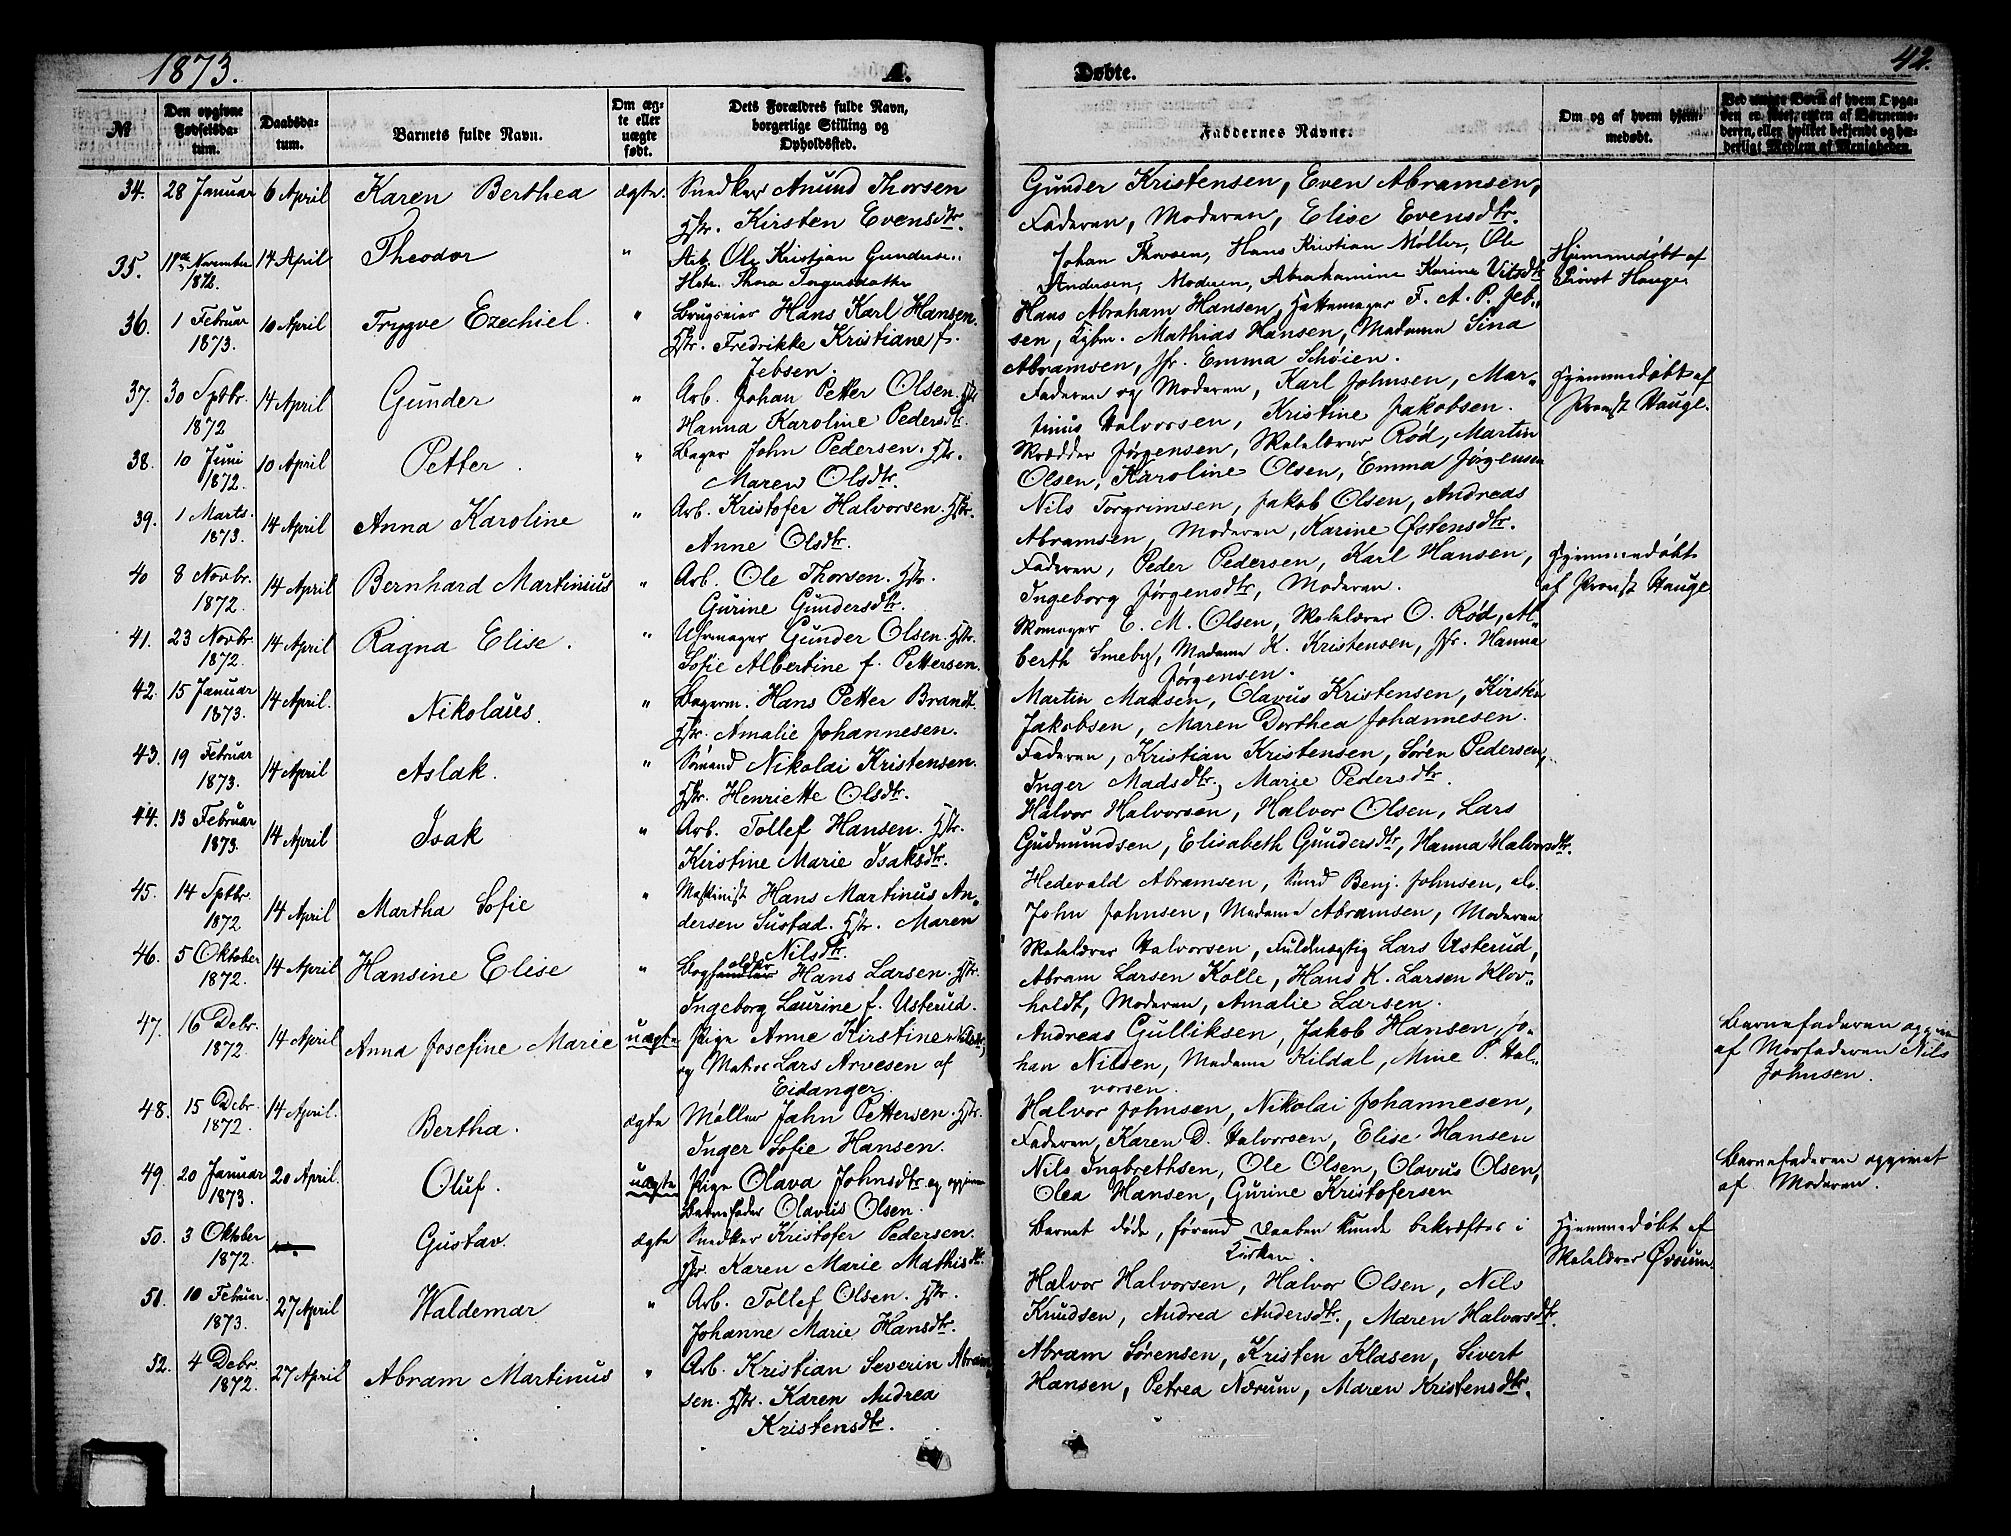 1873.
A. Døbte.
42.
№
Den opgivne Fødselsdatum.
Daabsdatum.
Barnets fulde Navn.
Om ægte eller uægte født.
Dets Forældres fulde Navn, borgerlige Stilling og Opholdssted.
Faddernes Navne.
Om og af hvem hjemmedøbt.
Ved uægte Børn af hvem Opgaven er skeet, enten af Barnemoderen, eller hvilket bekjendt og hæderligt Medlem af Menigheden.
34. 28 Januar 6 April Karen Berthea ægte. Snedker Anund Thorsen
Hstr. Kirsten Evensdtr.
Gunder Kristensen, Even Abramsen,
Faderen, Moderen, Elise Evensdtr.
35. 19de November 1872. 14 April Theodor " Arb. Ole Kristjan Gunderse..
Hstr. Thora Torgersdatter
Johan Thorsen, Hans Kristian Møller, Ole
Andersen, Moderen, Abrahamine Karine Vitsdtr
Hjemmedøbt af
Provst Hauge
36. 1 Februar 1873. 10 April Trygve Ezechiel. " Brugseier Hans Karl Hansen.
Hstr. Fredrikke Kristiane f.
Jebsen.
Hans Abraham Hansen, Hattemager F. A. P. Jeb-
sen, Kjbm. Mathias Hansen, Madame Sina
Abramsen, Jfr. Emma Schøien.
37. 30 Sptbr. 1872 14 April Gunder " Arb. Johan Petter Olsen. Hstr
Hanna Karoline Pedersdtr.
Faderen og Moderen, Karl Johnsen, Mar-
tinus Halvorsen, Kristine Jakobsen.
Hjemmedøbt af
Provst Hauge.
38. 10 Juni 1872. 10 April Petter. " Bager John Pedersen. Hstr.
Maren Olsdtr.
Skrædder Jørgensen, Skolelærer Rød, Martin
Olsen, Karoline Olsen, Emma Jørgensen
39. 1 Marts. 1873. 14 April Anna Karoline " Arb. Kristofer Halvorsen. Hstr.
Anne Olsdtr.
Nils Torgrimsen, Jakob Olsen, Andreas
Abramsen, Moderen, Karine Østensdtr.
40 8 Novbr. 1872. 14 April Bernhard Martinius " Arb. Ole Thorsen. Hstr.
Gurine Gundersdtr.
Faderen, Peder Pedersen, Karl Hansen,
Ingeborg Jørgensdtr, Moderen.
Hjemmedøbt
af Provst Hauge
41. 23 Novbr 1872. 14 April Ragna Elise. " Uhrmager Gunder Olsen. Hstr.
Sofie Albertine f. Pettersen.
Skomager E. M. Olsen, Skolelærer O. Rød, Al-
berth Smeby, Madame K. Kristensen, Jfr. Hanna
Jørgensen.
42. 15 Januar 1873. 14 April. Nikolaus. " Bagerm. Hans Petter Brandt.
Hstr. Amalie Johannesen.
Martin Madsen, Olavus Kristensen, Kirsten
Jakobsen, Maren Dorthea Johannesen.
43. 19 Februar 1873. 14 April Aslak. " Sømand Nikolai Kristensen.
Hstr. Henriette Olsdtr.
Faderen, Kristian Kristensen, Søren Pedersen,
Inger Madsdtr., Marie Pedersdtr.
44. 13 Februar 1873. 14 April Isak " Arb. Tollef Hansen. Hstr.
Kirstine Marie Isaksdtr.
Halvor Halvorsen, Halvor Olsen, Lars
Gudmundsen, Elisabeth Gundersdtr, Hanna Halvorsdtr.
45. 14 Sptbr. 1872 14 April Martha Sofie " Maskinist Hans Martinus An-
dersen Sustad. Hstr. Maren
Nilsdtr.
Hedevald Abramsen, Smed Benj. Johnsen, do.
John Johnsen, Madame Abramsen, Moderen
46. 5 Oktober 1872. 14 April Hansine Elise " Boghandler older Hans Larsen. Hstr.
Ingeborg Laurine f. Usterud.
Skolelærer Halvorsen, Fuldmægtig Lars Usterud,
Abram Larsen Kolle, Hans K. Larsen Klov-
holdt, Moderen, Amalie Larsen.
47. 16 Debr. 1872. 14 April Anna Josefine Marie uægte Pige Anne Kirstine Nilsdtr,
og Matros Lars Arvesen af
Eidanger.
Andreas Gulliksen, Jakob Hansen, Jo-
han Nilsen, Madame Kildal, Mine P. Hal-
vorsen.
Barnefaderen opgiven
af Morfaderen Nils
Johnsen.
48. 15 Debr. 1872. 14 April. Bertha. ægte Møller Jahn Pettersen. Hstr.
Inger Sofie Hansen.
Halvor Johnsen, Nikolai Johannesen,
Faderen, Karen D. Halvorsen, Elise Hansen
49. 20 Januar 1873. 20 April. Oluf. uægte Pige Olava Johnsdtr og opgiven
Barnefader Olavus Olsen.
Nils Ingbrethsen, Ole Olsen, Olavus Olsen,
Olea Hansen, Gurine Kristofersen
Barnefaderen opgivet
af Moderen.
50. 3 Oktober 1872. Gustav. ægte Snedker Kristofer Pedersen.
Hstr Karen Marie Mathisdtr.
Barnet døde, førend Daaben kunde bekræftes i
Kirken.
Hjemmedøbt af
Skolelærer Øvrum.
51. 10 Februar. 1873. 27 April Waldemar " Arb. Tollef Olsen. Hstr.
Johanne Marie Hansdtr.
Halvor Halvorsen, Halvor Olsen, Nils
Knudsen, Andrea Andersdtr., Maren Halvorsdtr.
52. 4 Debr. 1872. 27 April Abram Martinus " Arb. Kristian Severin Abram-
sen. Hstr. Karen Andrea
Kristensdtr.
Abram Sørensen, Kristen Klasen, Sivert
Hansen, Petrea Nærum, Maren Kristensdtr.